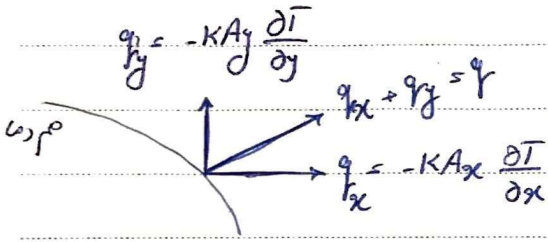 q_y = -KA_y ∂T/∂y
q_x + q_y = q
q_x = -KA_x ∂T/∂x